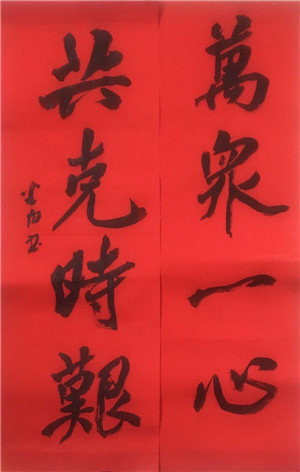 萬眾一心
共克時艱